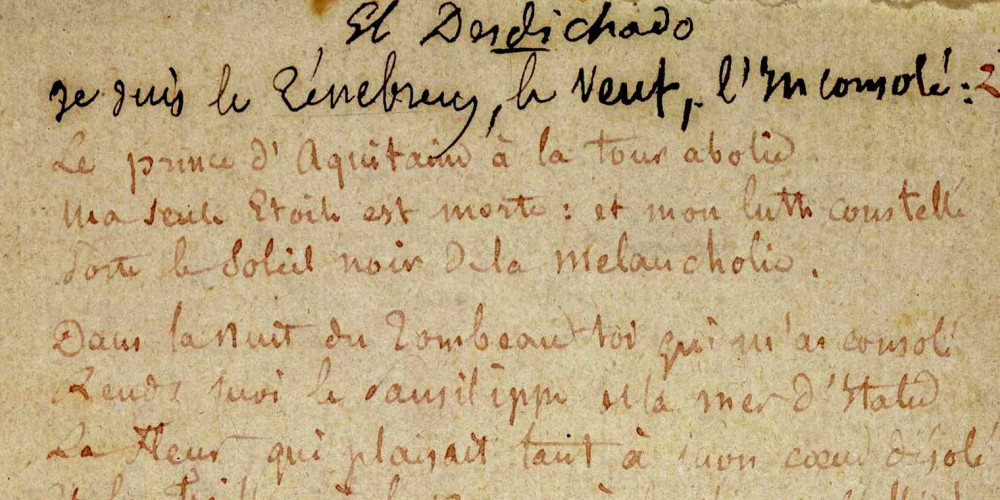 El Desdichado
Je suis le Ténébreux, le Veuf, l'Inconsolé :
Le prince d'Aquitaine à la tour abolie
Ma seule Etoile est morte : et mon luth constellé
Porte le Soleil noir de la Melancholie.
Dans la nuit du Tombeau toi qui m'as consolé
Rends moi le Pausilippe et la mer d'Italie
La Fleur qui plaisait tant à mon cœur désolé